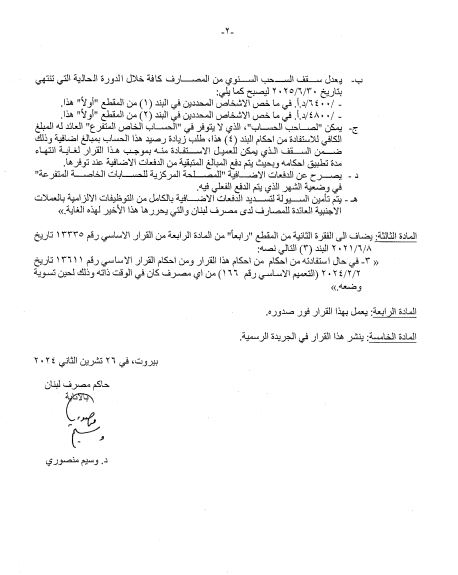 -٢-
ب- يعدل سقف السحب السنوي من المصارف كافة خلال الدورة الحالية التي تنتهي
بتاريخ ٢٠٢٥/٦/٣٠ ليصبح كما يلي:
- /٦٤٠٠/د.أ. في ما خص الاشخاص المحددين في البند (١) من المقطع "أولاً" هذا.
- /٤٨٠٠/د.أ. في ما خص الاشخاص المحددين في البند (٢) من المقطع "أولاً" هذا.
ج- يمكن "لصاحب الحساب"، الذي لا يتوفر في "الحساب الخاص المتفرع" العائد له المبلغ
الكافي للاستفادة من احكام البند (٤) هذا، طلب زيادة رصيد هذا الحساب بمبالغ اضافية وذلك
ضمن السقف الذي يمكن للعميل الاستفادة منه بموجب هذا القرار لغاية انتهاء
مدة تطبيق احكامه وبحيث يتم دفع المبالغ المتبقية من الدفعات الاضافية عند توفرها.
د- يصرح عن الدفعات الاضافية "للمصلحة المركزية للحسابات الخاصة المتفرعة"
في وضعية الشهر الذي يتم الدفع الفعلي فيه.
هـ- يتم تأمين السيولة لتسديد الدفعات الاضافية بالكامل من التوظيفات الالزامية بالعملات
الاجنبية العائدة للمصارف لدى مصرف لبنان والتي يحررها هذا الأخير لهذه الغاية.»
المادة الثالثة: يضاف الى الفقرة الثانية من المقطع "رابعاً" من المادة الرابعة من القرار الاساسي رقم ١٣٣٣٥ تاريخ
٢٠٢١/٦/٨ البند (٣) التالي نصه:
«٣- في حال استفادته من احكام من احكام هذا القرار ومن احكام القرار الاساسي رقم ١٣٦١١ تاريخ
٢٠٢٤/٢/٢ (التعميم الاساسي رقم ١٦٦) من اي مصرف كان في الوقت ذاته وذلك لحين تسوية
وضعه.»
المادة الرابعة: يعمل بهذا القرار فور صدوره.
المادة الخامسة: ينشر هذا القرار في الجريدة الرسمية.
بيروت، في ٢٦ تشرين الثاني ٢٠٢٤
حاكم مصرف لبنان
بالانابة
د. وسيم منصوري